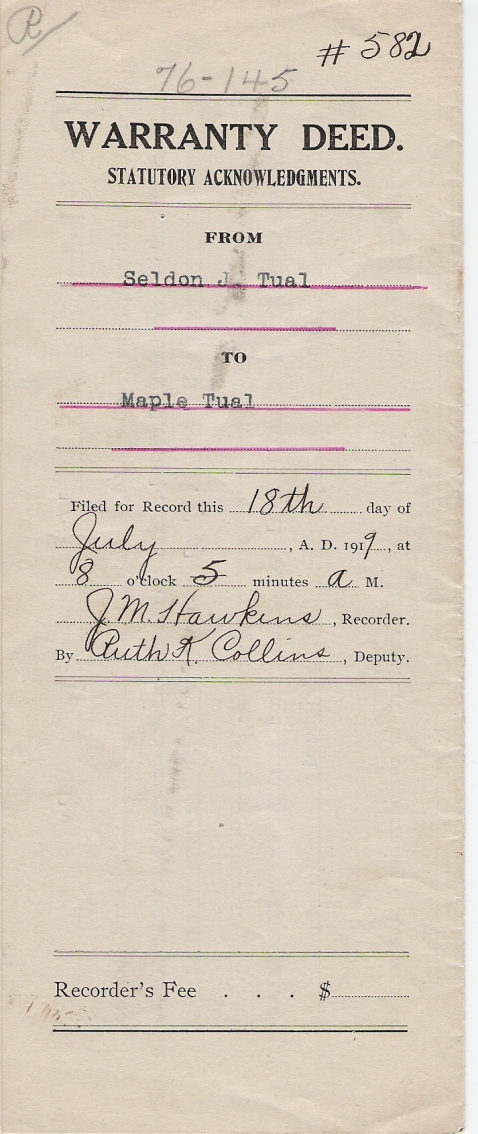 R
# 582
76-145
WARRANTY DEED.
STATUTORY ACKNOWLEDGMENTS.
FROM
Seldon J. Tual
TO
Maple Tual
Filed for Record this 18th day of
July, A. D. 1919, at
8 o'clock 5 minutes a M.
J. M. Hawkins, Recorder.
By Ruth K. Collins, Deputy.
Recorder's Fee . . . $